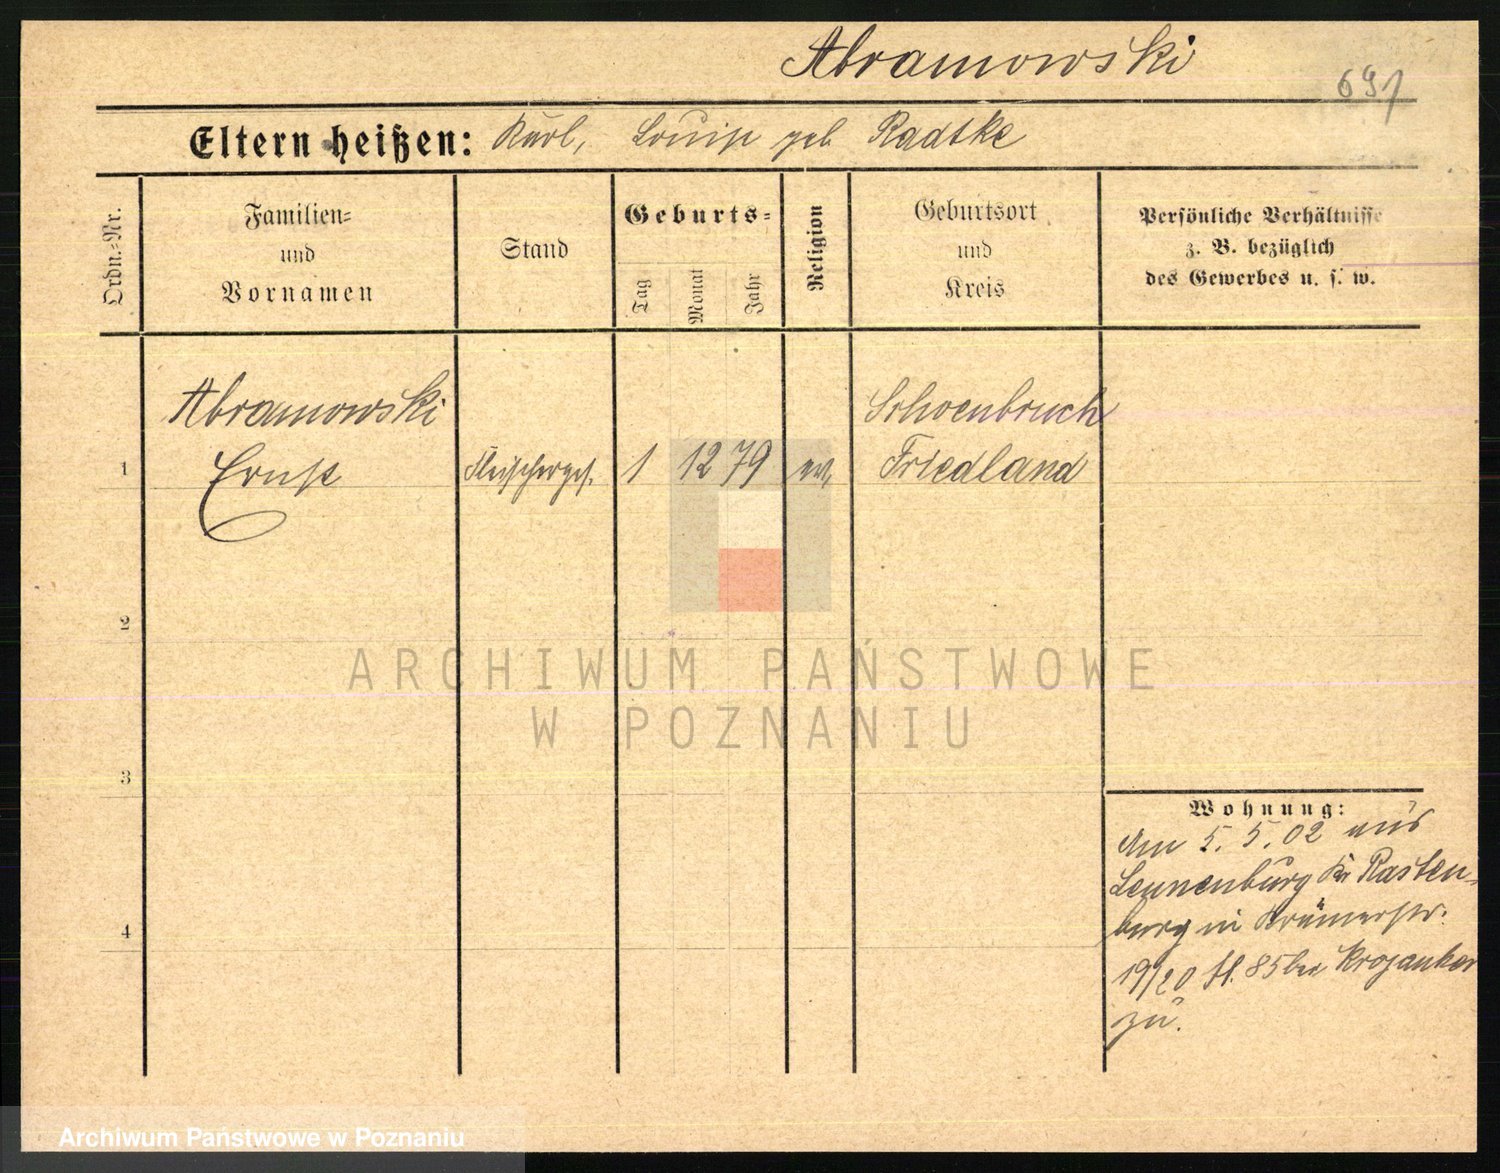 Abramowski
691
Eltern heißen: Karl, Louise geb Radtke
Ordn.=Nr.
Familien=
und
Vornamen
Stand
Geburts=
Tag
Monat
Jahr
Religion
Geburtsort
und
Kreis
Persönliche Verhältnisse
z. B. bezüglich
des Gewerbes u. s. w.
Abramowski
Schoenbruch
1 Ernst Fleischerges. 1 12 79 ev. Friedland
2
ARCHIWUM PAŃSTWOWE
W POZNANIU
3
Wohnung:
Am 5. 5. 02 aus
Leunenburg Kr Rasten-
4
burg in Krämerstr.
19/20 bei Krojanker
zu.
Archiwum Państwowe w Poznaniu